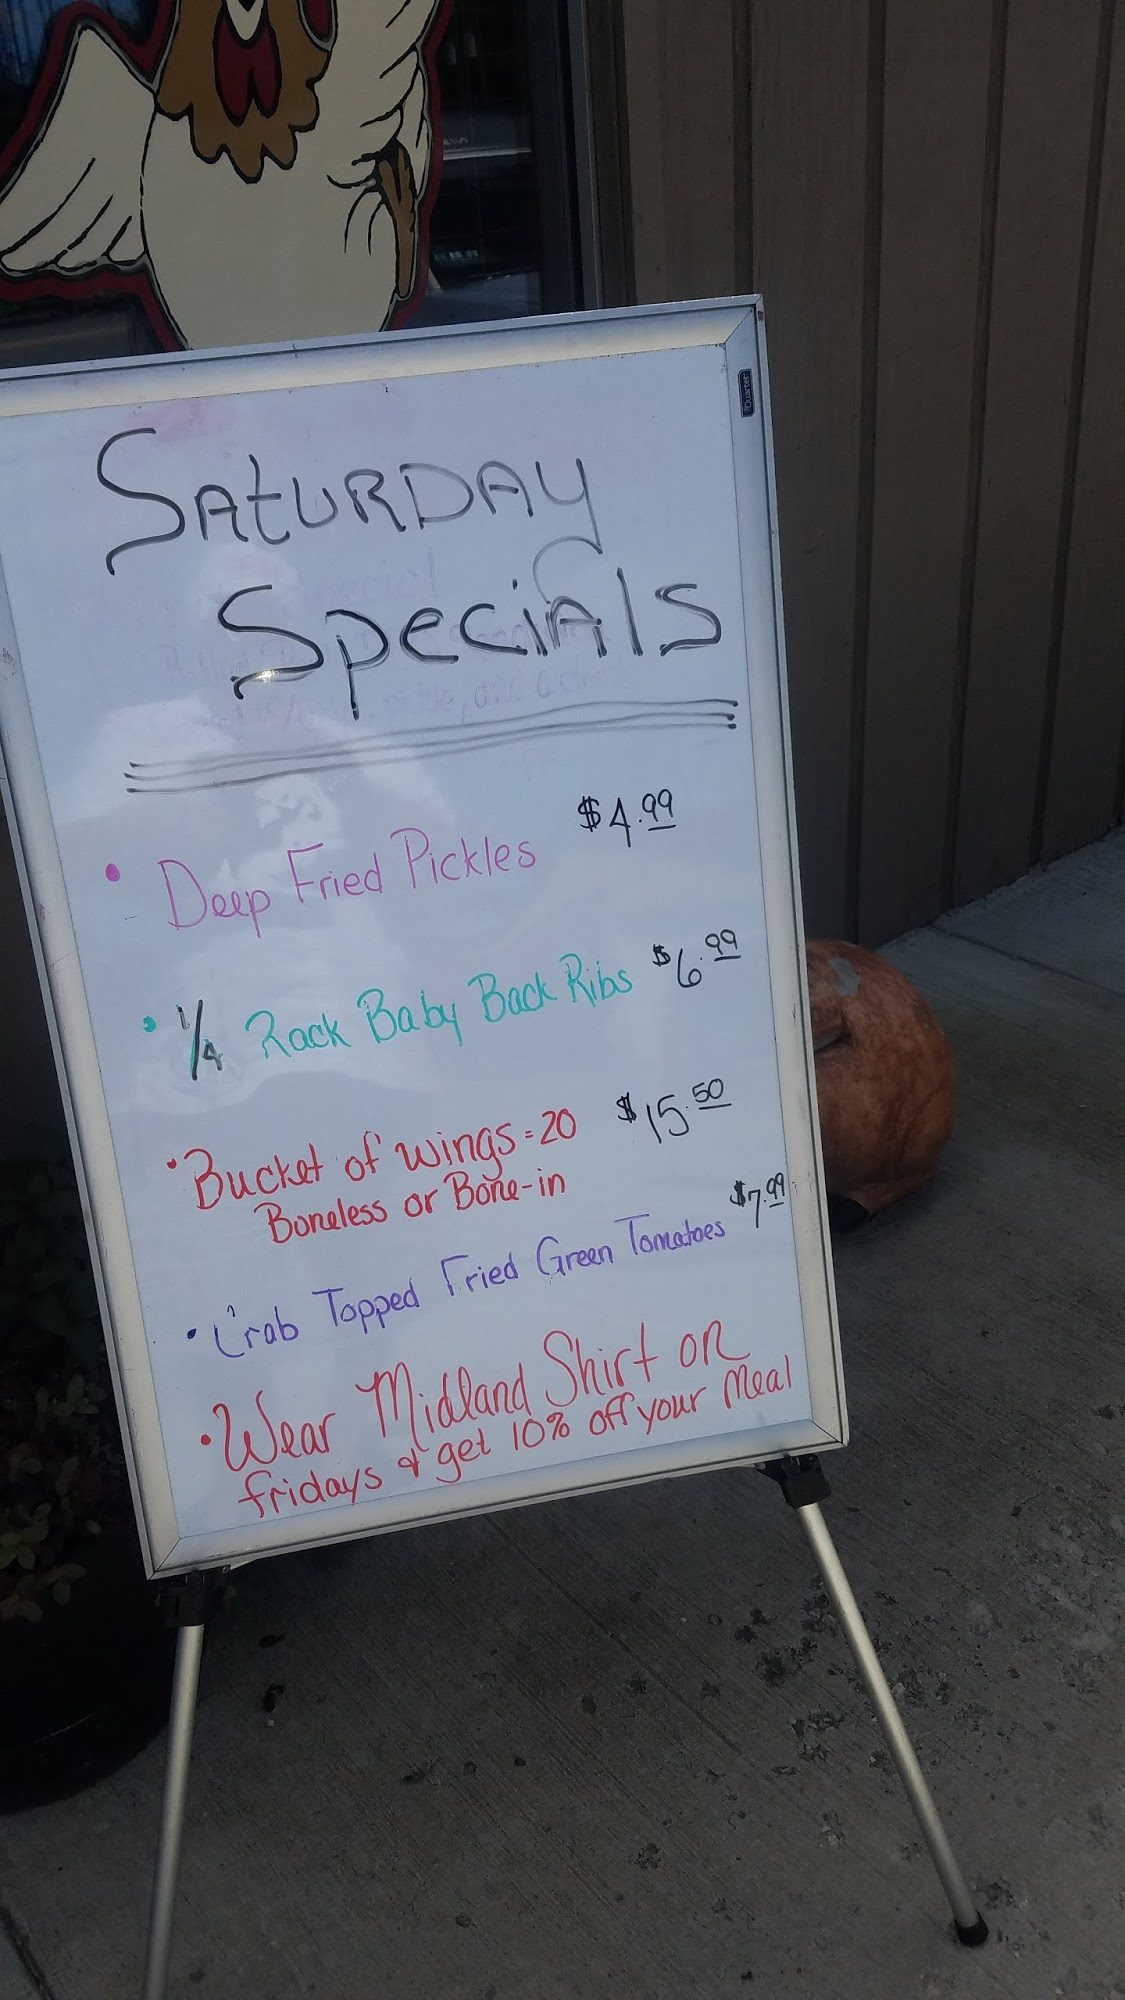 Quartet
SAtURDAY
SpeciAlS
• Deep Fried Pickles $4.99
• 1/4 Rack Baby Back Ribs $6.99
• Bucket of wings = 20 $15.50
Boneless or Bone-in
• Crab Topped Fried Green Tomatoes $7.99
• Wear Midland Shirt on
fridays & get 10% off your meal